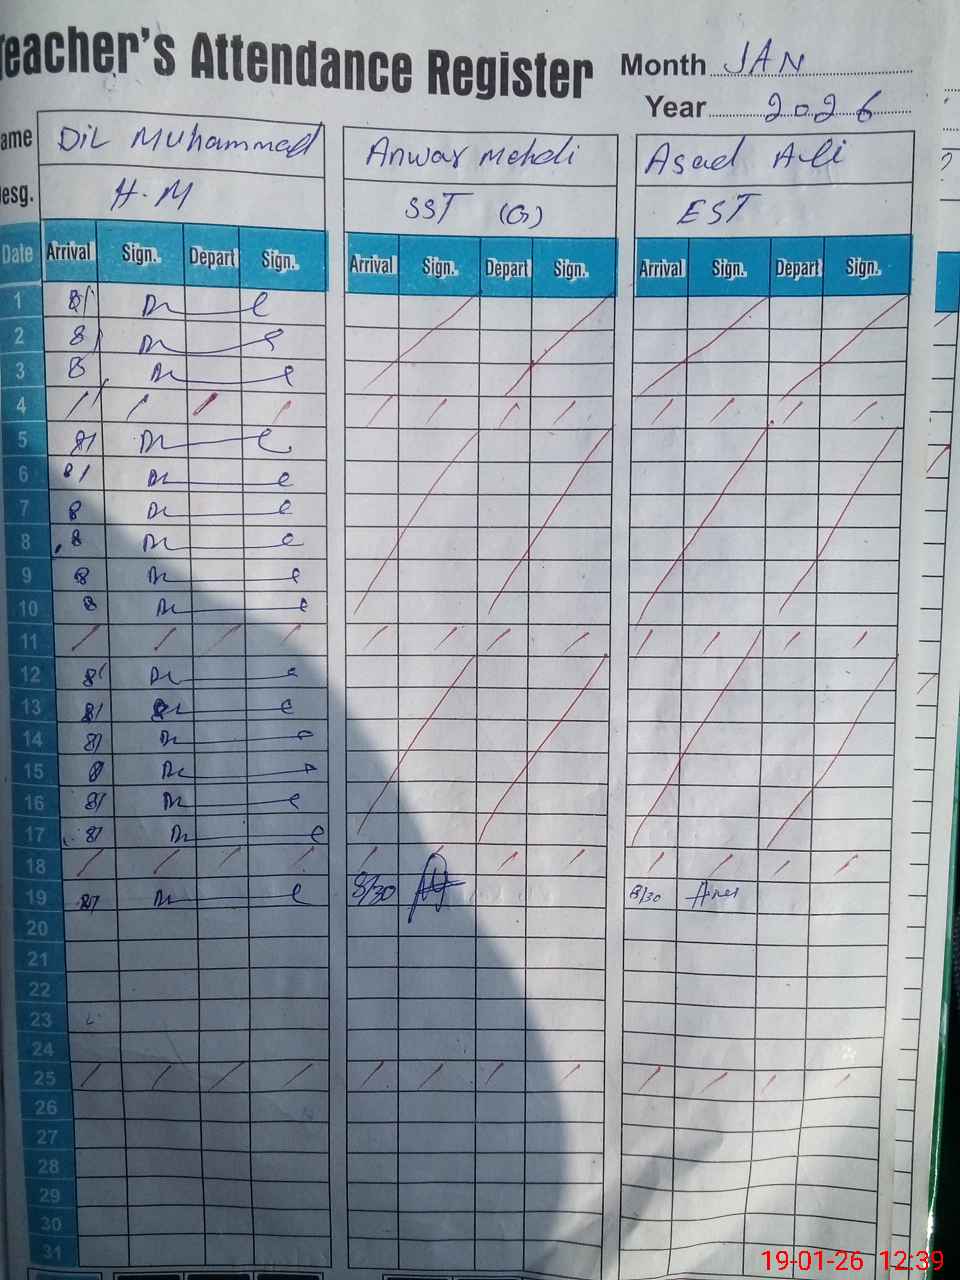 Teacher's Attendance Register
Month JAN
Year 2026
ame Dil Muhammad Anwar Mehdi Asad Ali
esg. H.M SST (G) EST
Date Arrival Sign. Depart Sign. Arrival Sign. Depart Sign. Arrival Sign. Depart Sign.
1 8/
2 8/
3 8
4
5 8/
6 8/
7 8
8 8
9 8
10 8
11
12 8/
13 8/
14 8/
15 8
16 8/
17 8/
18
19 8/ 8/30 8/30
20
21
22
23
24
25
26
27
28
29
30
31
19-01-26 12:39